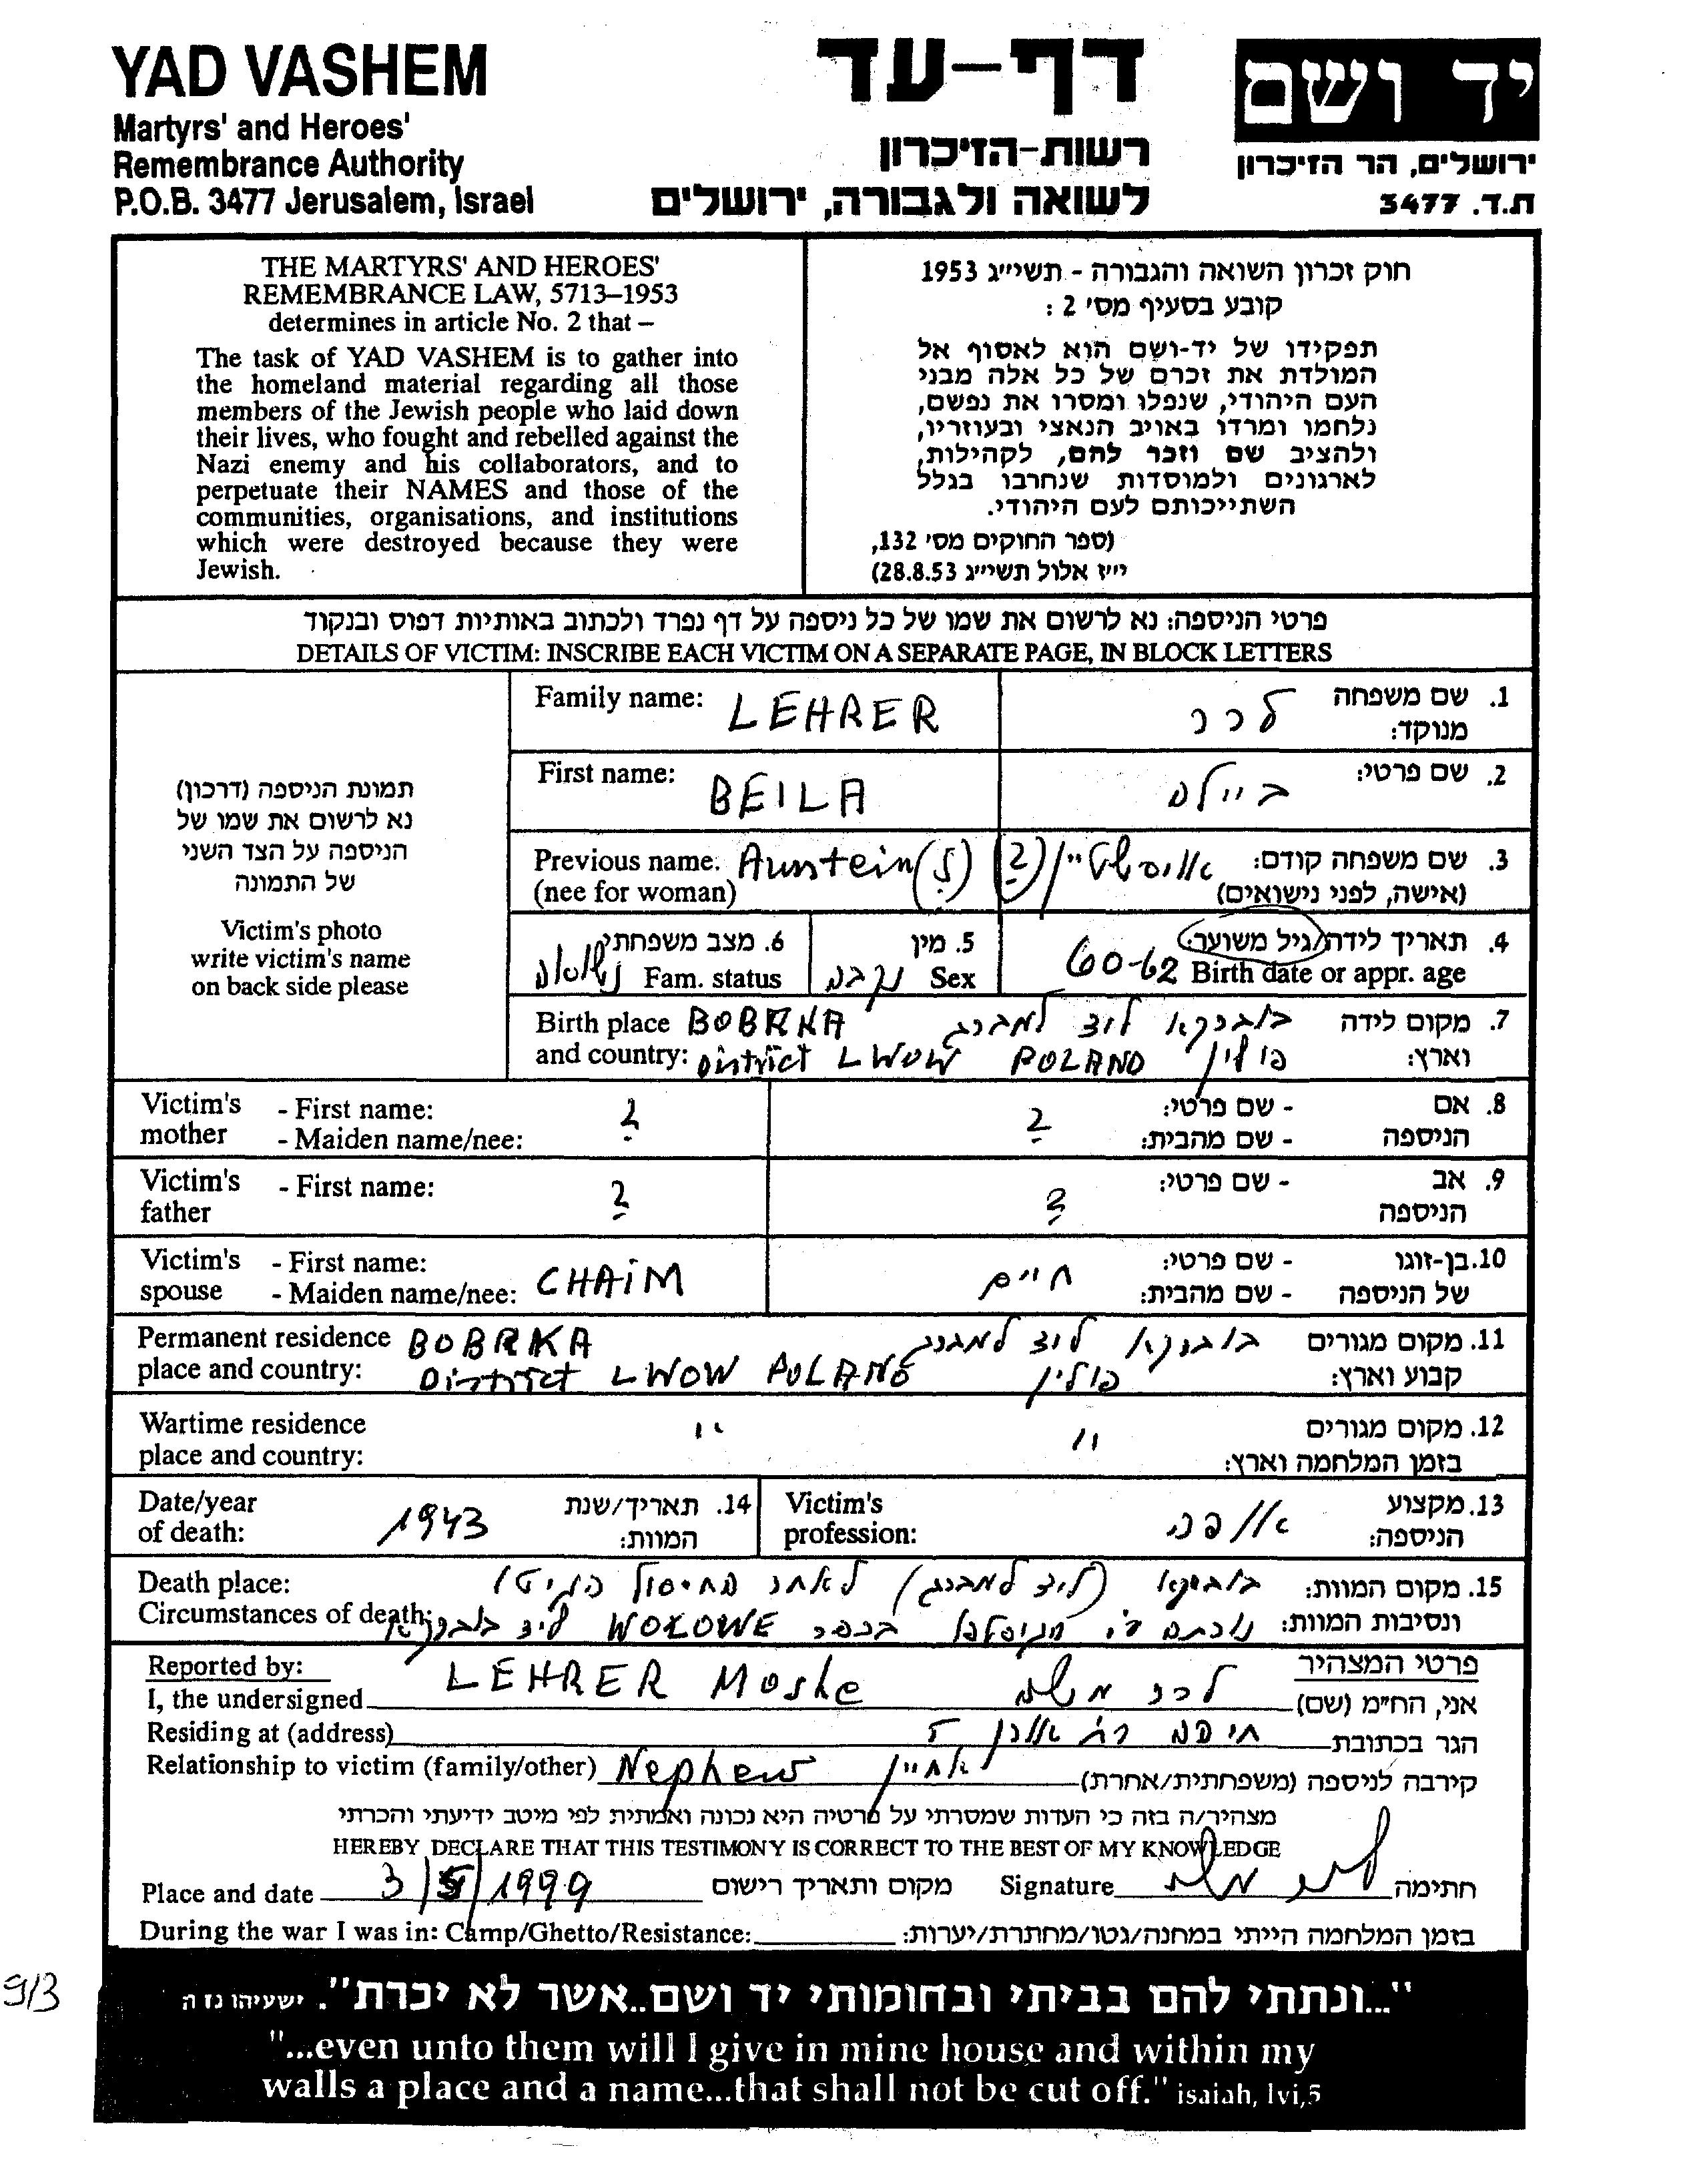 YAD VASHEM
Martyrs' and Heroes'
Remembrance Authority
P.O.B. 3477 Jerusalem, Israel
דף-עד
רשות-הזיכרון
לשואה ולגבורה, ירושלים
יד ושם
ירושלים, הר הזיכרון
ת.ד. 3477
THE MARTYRS' AND HEROES'
REMEMBRANCE LAW, 5713–1953
determines in article No. 2 that –
The task of YAD VASHEM is to gather into
the homeland material regarding all those
members of the Jewish people who laid down
their lives, who fought and rebelled against the
Nazi enemy and his collaborators, and to
perpetuate their NAMES and those of the
communities, organisations, and institutions
which were destroyed because they were
Jewish.
חוק זכרון השואה והגבורה - תשי״ג 1953
קובע בסעיף מס׳ 2 :
תפקידו של יד-ושם הוא לאסוף אל
המולדת את זכרם של כל אלה מבני
העם היהודי, שנפלו ומסרו את נפשם,
נלחמו ומרדו באויב הנאצי ובעוזריו,
ולהציב שם וזכר להם, לקהילות,
לארגונים ולמוסדות שנחרבו בגלל
השתייכותם לעם היהודי.
(ספר החוקים מס׳ 132,
י״ז אלול תשי״ג 28.8.53)
פרטי הניספה: נא לרשום את שמו של כל ניספה על דף נפרד ולכתוב באותיות דפוס ובנקוד
DETAILS OF VICTIM: INSCRIBE EACH VICTIM ON A SEPARATE PAGE, IN BLOCK LETTERS
תמונת הניספה (דרכון)
נא לרשום את שמו של
הניספה על הצד השני
של התמונה
Victim's photo
write victim's name
on back side please
Family name: LEHRER
1. שם משפחה
מנוקד: לרר
First name: BEILA
2. שם פרטי: ביילה
Previous name. Aunstein (?)
(nee for woman)
3. שם משפחה קודם: (?)
(אישה, לפני נישואים)
4. תאריך לידה/גיל משוער:
Birth date or appr. age 60-62
5. מין
Sex נקבה
6. מצב משפחתי
Fam. status נשואה
Birth place BOBRKA
and country: District LWOW POLAND
7. מקום לידה בוברקא ליד למברג
וארץ: פולין
Victim's - First name: ?
mother - Maiden name/nee:
8. אם - שם פרטי: ?
הניספה - שם מהבית:
Victim's - First name: ?
father
9. אב - שם פרטי: ?
הניספה
Victim's - First name:
spouse - Maiden name/nee: CHAIM
10. בן-זוגו - שם פרטי: חיים
של הניספה - שם מהבית:
Permanent residence BOBRKA
place and country: District LWOW POLAND
11. מקום מגורים בוברקא ליד למברג
קבוע וארץ: פולין
Wartime residence "
place and country:
12. מקום מגורים "
בזמן המלחמה וארץ:
Date/year
of death: 1943
14. תאריך/שנת
המוות:
Victim's
profession:
13. מקצוע
הניספה: אופה
Death place:
Circumstances of death:
15. מקום המוות: בוברקא (ליד למברג) לאחר חיסול הגיטו
ונסיבות המוות: בכפר WOLOWE ליד בוברקא
Reported by:
פרטי המצהיר
I, the undersigned LEHRER Moshe
אני, הח״מ (שם) לרר משה
Residing at (address)
הגר בכתובת חיפה רח׳
Relationship to victim (family/other) Nephew
קירבה לניספה (משפחתית/אחרת) אחיין
מצהיר/ה בזה כי העדות שמסרתי על פרטיה היא נכונה ואמתית לפי מיטב ידיעתי והכרתי
HEREBY DECLARE THAT THIS TESTIMONY IS CORRECT TO THE BEST OF MY KNOWLEDGE
Place and date 3/5/1999 מקום ותאריך רישום
Signature חתימה
During the war I was in: Camp/Ghetto/Resistance: בזמן המלחמה הייתי במחנה/גטו/מחתרת/יערות:
9/3
"...ונתתי להם בביתי ובחומותי יד ושם..אשר לא יכרת". ישעיהו נו ה
"...even unto them will I give in mine house and within my
walls a place and a name...that shall not be cut off." isaiah, lvi,5